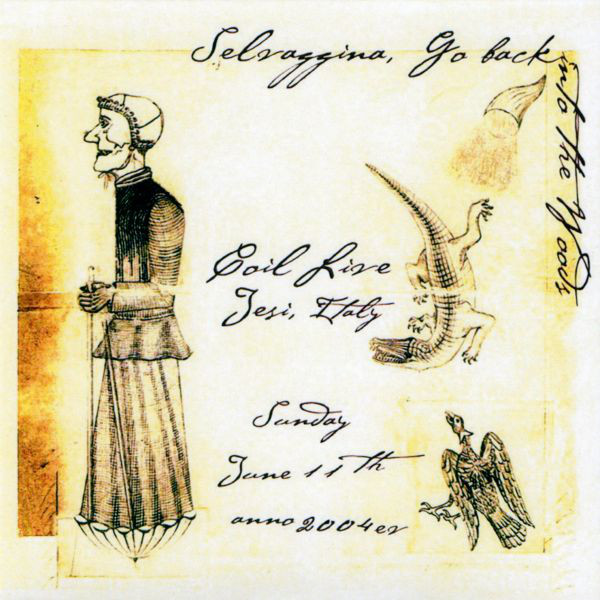 Selvaggina, Go back
into the Woods
Coil Live
Jesi, Italy
Sunday
June 11th
anno 2004er